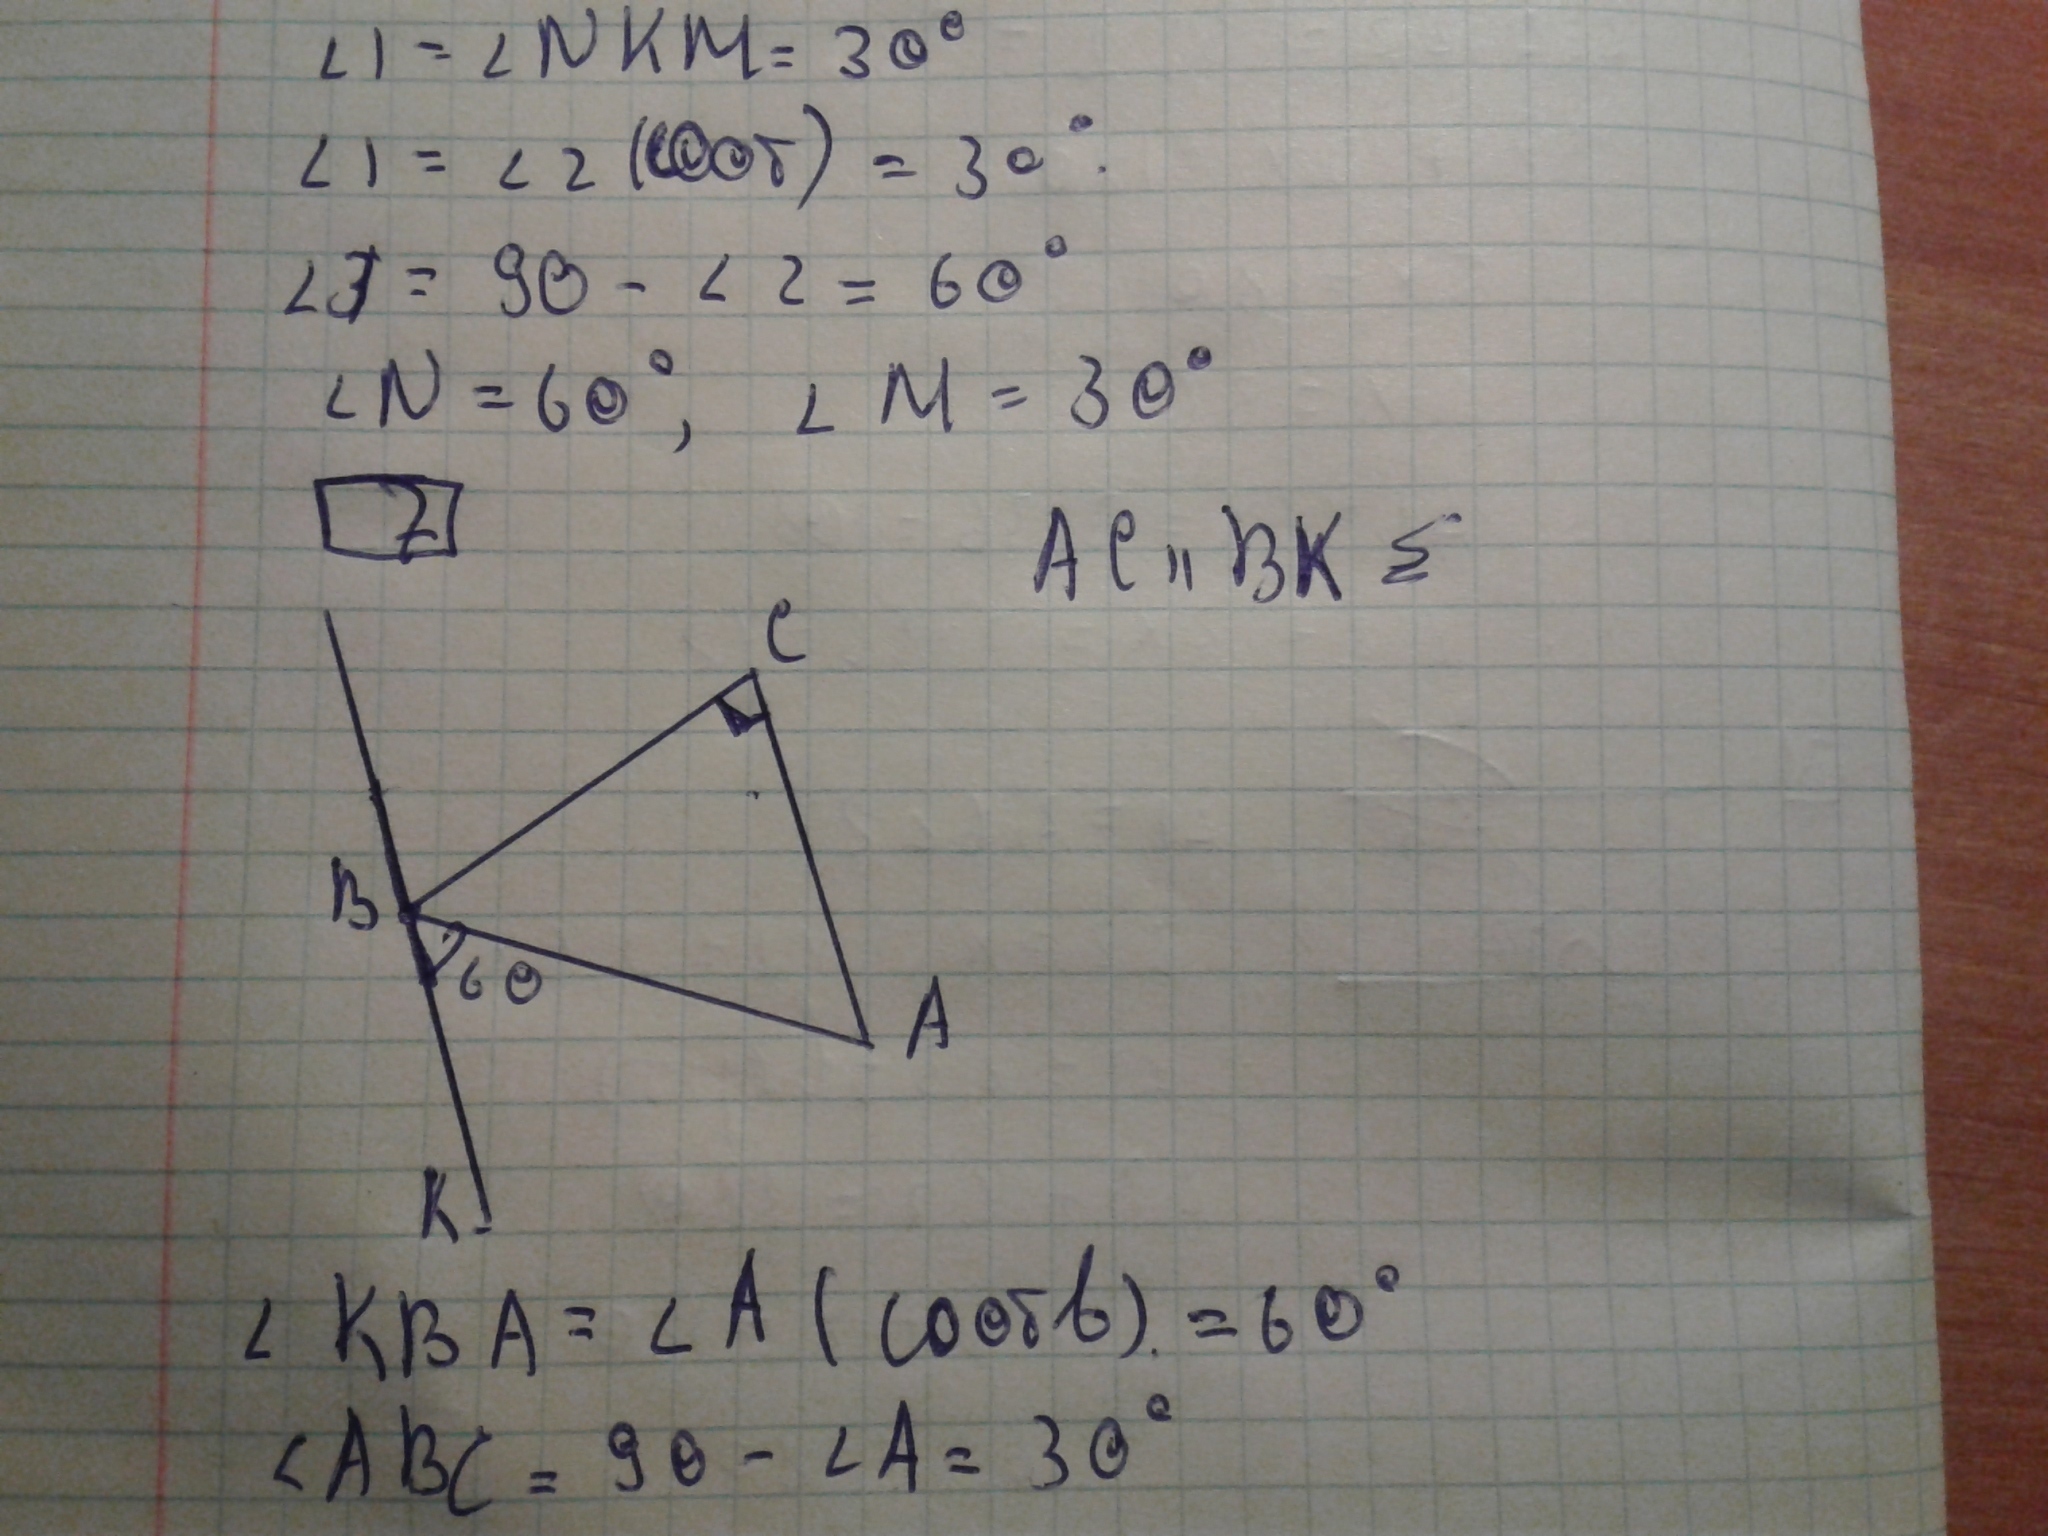 ∠1 = ∠NKM = 30°
∠1 = ∠2 (соот) = 30°.
∠3 = 90 - ∠2 = 60°
∠N = 60°, ∠M = 30°
7
AC || BK
C
B
60
A
K
∠KBA = ∠A (соотв). = 60°
∠ABC = 90 - ∠A = 30°